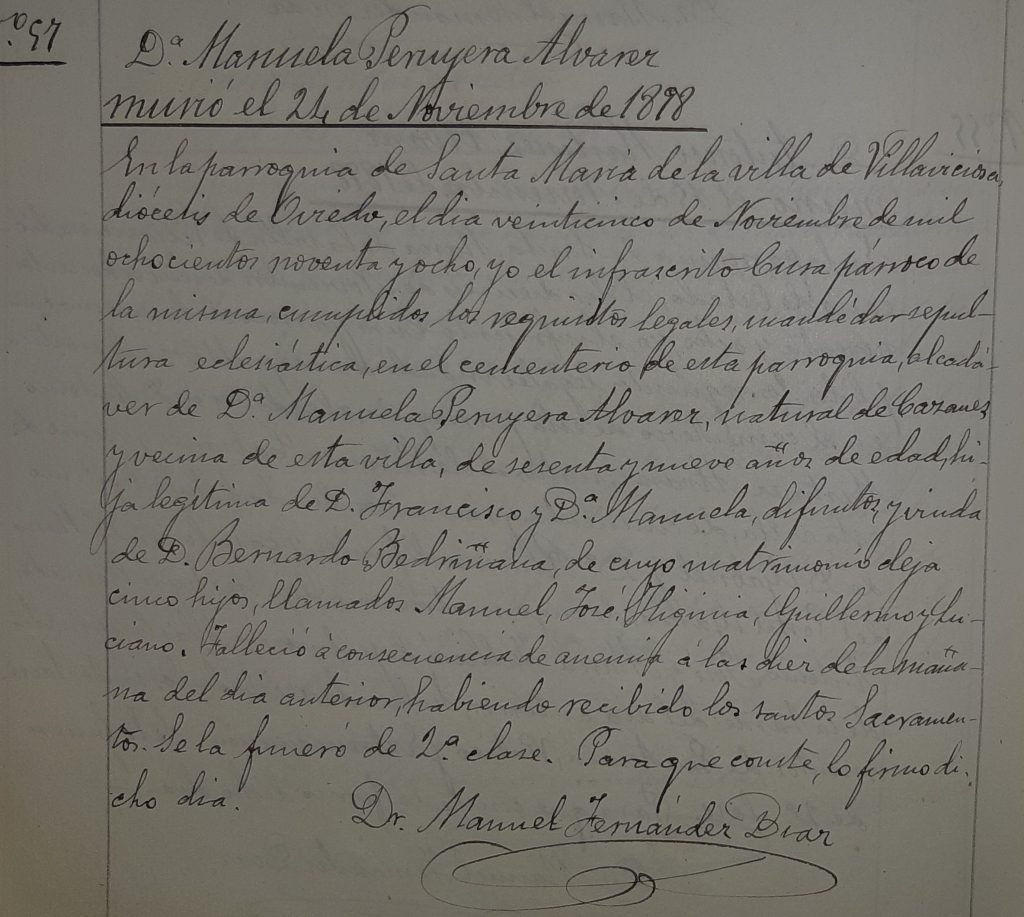 Dª Manuela Peruyera Alvarez
murió el 24 de Noviembre de 1898
En la parroquia de Santa María de la villa de Villaviciosa,
diócesis de Oviedo, el dia veinticinco de Noviembre de mil
ochocientos noventa y ocho, yo el infrascrito Cura párroco de
la misma, cumplidos los requisitos legales, mandé dar sepul-
tura eclesiástica, en el cementerio de esta parroquia, al cadá-
ver de Dª Manuela Peruyera Alvarez, natural de Cazanes
y vecina de esta villa, de sesenta y nueve años de edad, hi-
ja legítima de D. Francisco y Dª Manuela, difuntos, y viuda
de D. Bernardo Bedriñana, de cuyo matrimonio deja
cinco hijos, llamados Manuel, José, Higinia, Guillermo y Lu-
ciano. Falleció á consecuencia de anemia á las diez de la maña-
na del dia anterior, habiendo recibido los santos Sacramen-
tos. Se la funeró de 2ª clase. Para que conste, lo firmo di-
cho dia.
Dr. Manuel Fernández Díaz